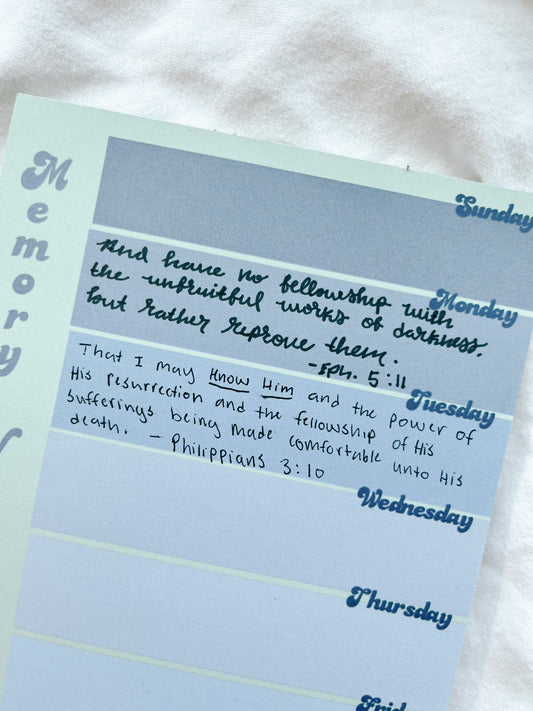 Memory
Sunday
And have no fellowship with
the unfruitful works of darkness.
but rather reprove them.
- EPh. 5:11
Monday
That I may Know Him and the power of
His resurrection and the fellowship of His
sufferings being made comfortable unto His
death. - Philippians 3:10
Tuesday
Wednesday
Thursday